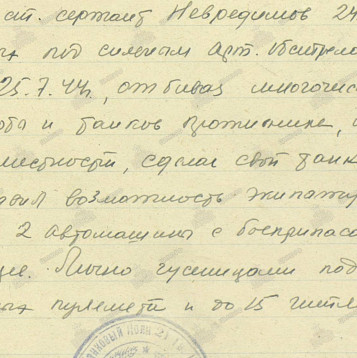 ст. сержант Невредимов 24
под сильным арт. обстрело
25.7.44г., отбивая многочис
и танков противника,
местности, сделав свой танк
возможность экипажу
2 автомашины с боеприпаса
Лично гусеницами под
пулемета и до 15 гитле